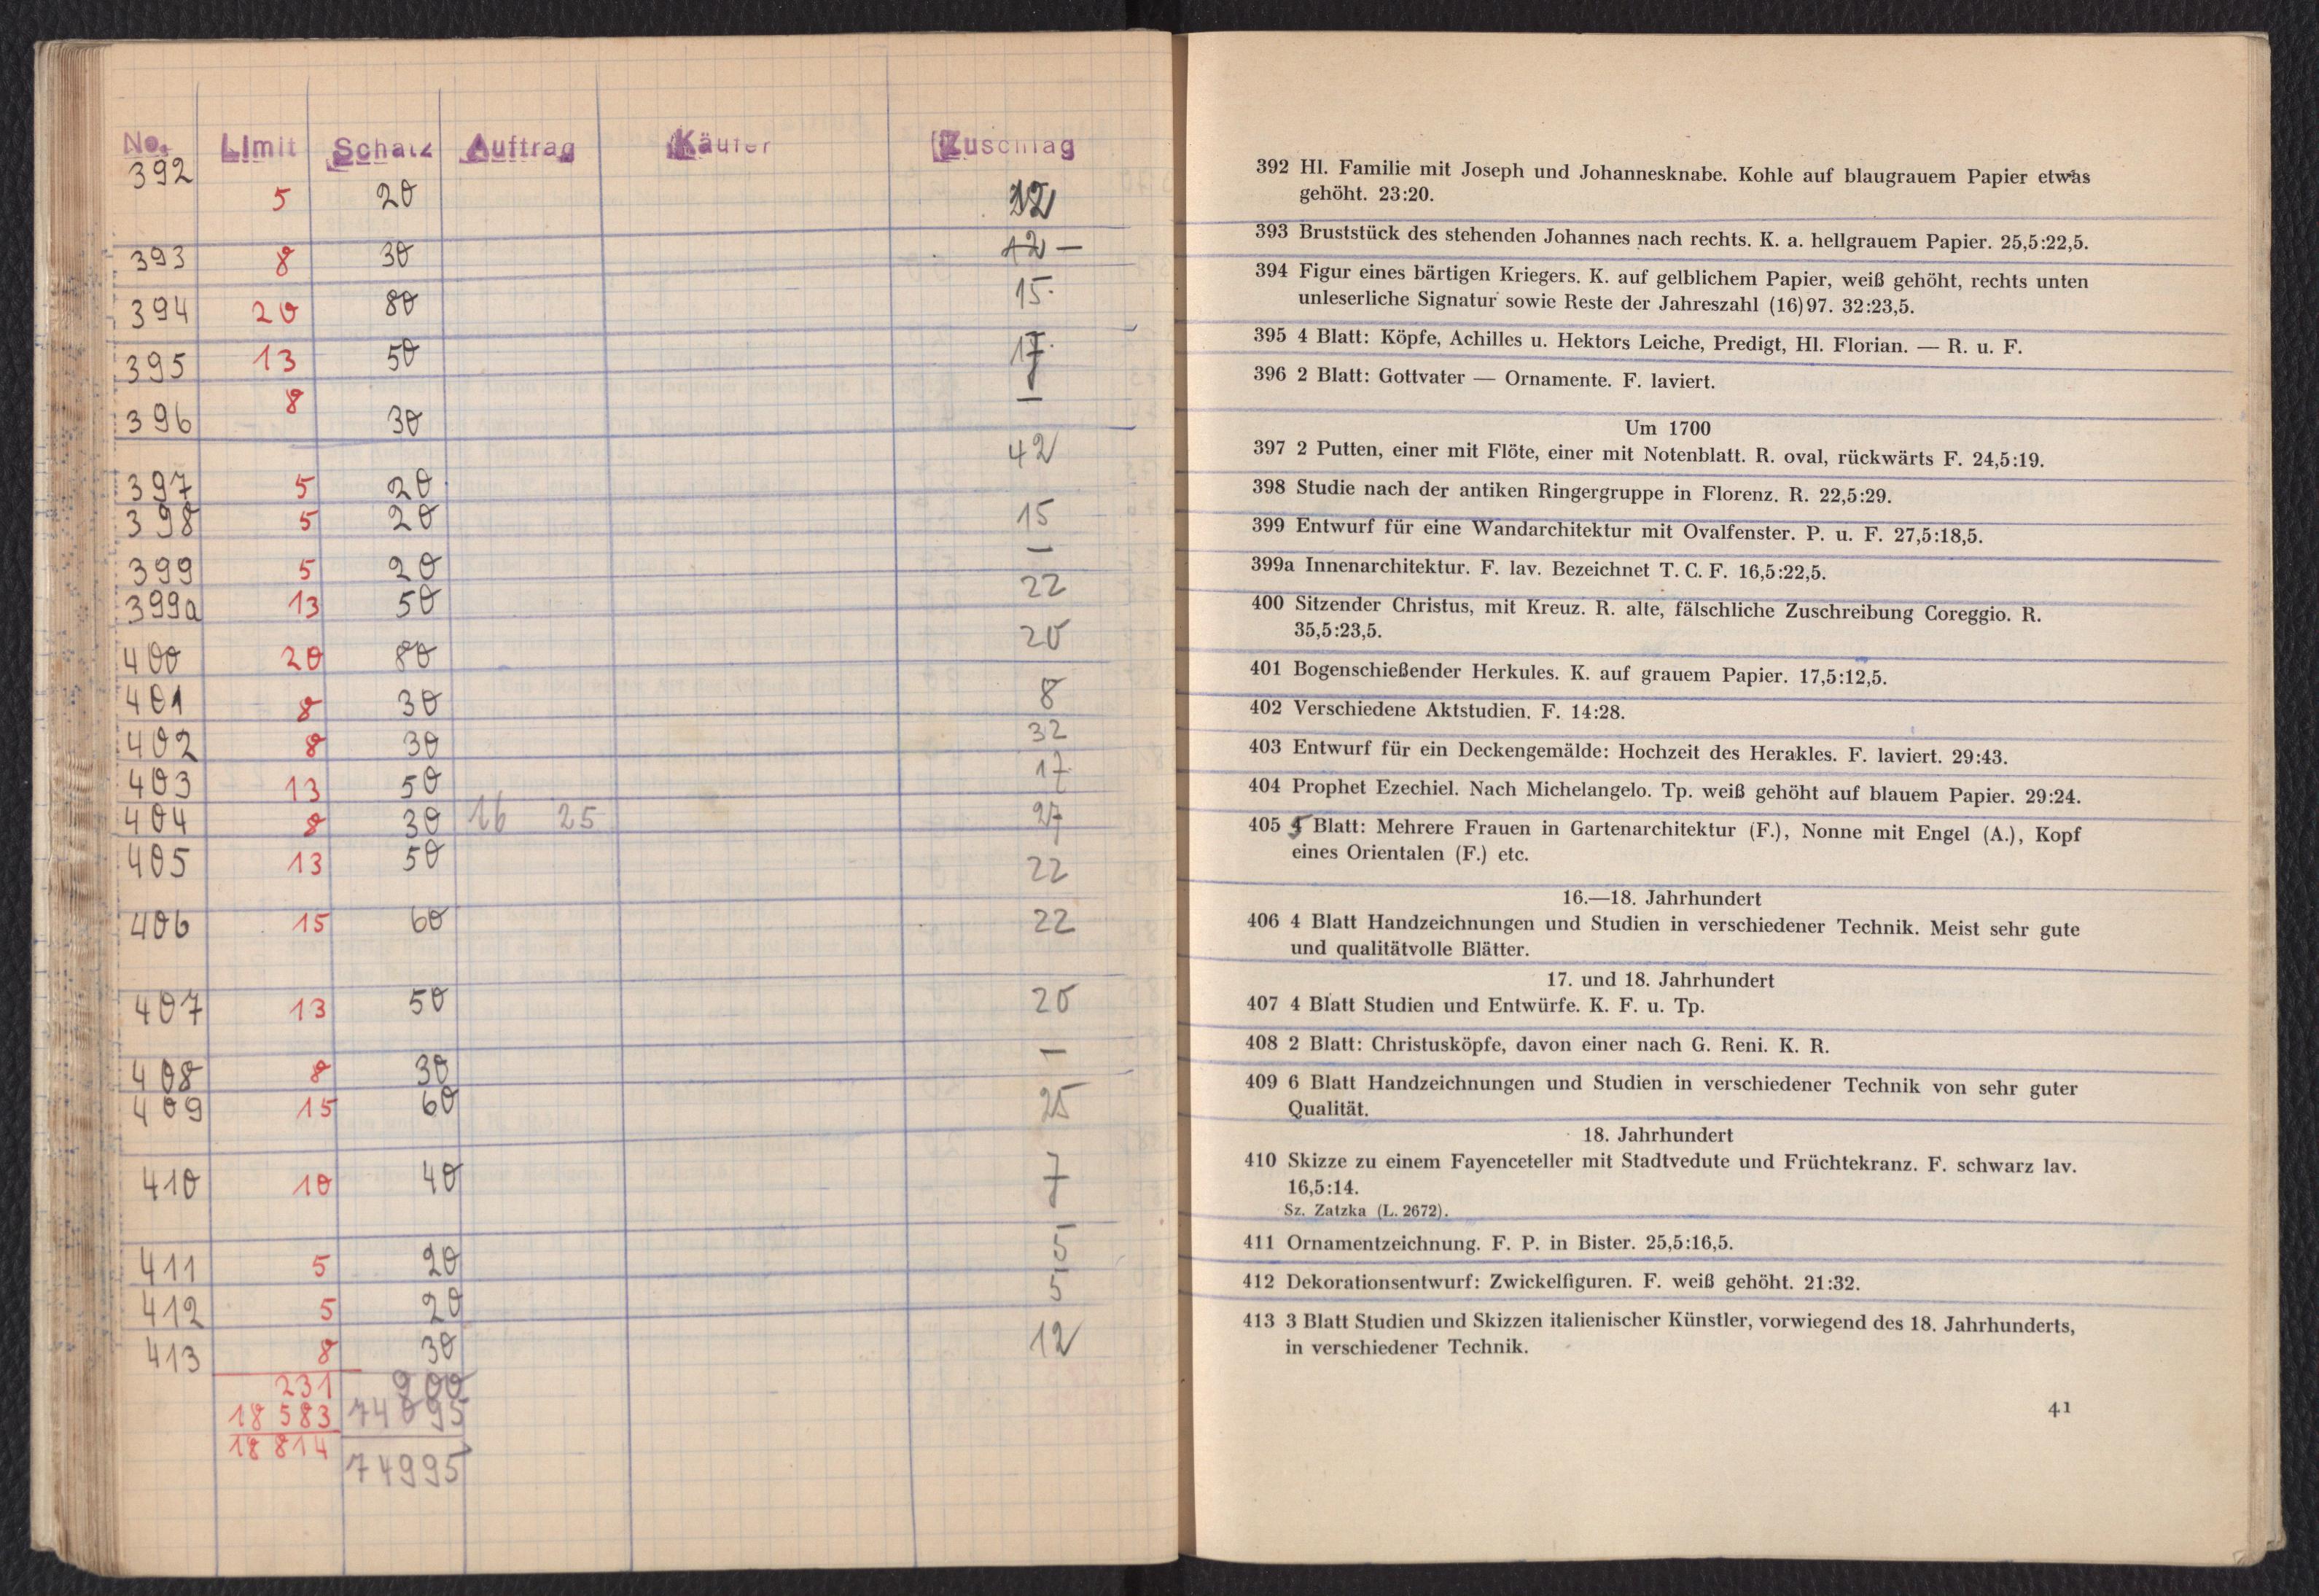 No. Limit Schatz Auftrag Käufer Zuschlag
392 5 20 12
393 8 30 12 —
394 20 80 15
395 13 50 17
396 8 30 —
397 5 20 42
398 5 20 15
399 5 20 —
399a 13 50 22
400 20 80 20
401 8 30 8
402 8 30 32
403 13 50 17
404 8 30 16 25 27
405 13 50 22
406 15 60 22
407 13 50 20
408 8 30 —
409 15 60 25
410 10 40 7
411 5 20 5
412 5 20 5
413 8 30 12
231 900
18 583 74 095
18 814 74995
392 Hl. Familie mit Joseph und Johannesknabe. Kohle auf blaugrauem Papier etwas
gehöht. 23:20.
393 Bruststück des stehenden Johannes nach rechts. K. a. hellgrauem Papier. 25,5:22,5.
394 Figur eines bärtigen Kriegers. K. auf gelblichem Papier, weiß gehöht, rechts unten
unleserliche Signatur sowie Reste der Jahreszahl (16)97. 32:23,5.
395 4 Blatt: Köpfe, Achilles u. Hektors Leiche, Predigt, Hl. Florian. — R. u. F.
396 2 Blatt: Gottvater — Ornamente. F. laviert.
Um 1700
397 2 Putten, einer mit Flöte, einer mit Notenblatt. R. oval, rückwärts F. 24,5:19.
398 Studie nach der antiken Ringergruppe in Florenz. R. 22,5:29.
399 Entwurf für eine Wandarchitektur mit Ovalfenster. P. u. F. 27,5:18,5.
399a Innenarchitektur. F. lav. Bezeichnet T. C. F. 16,5:22,5.
400 Sitzender Christus, mit Kreuz. R. alte, fälschliche Zuschreibung Coreggio. R.
35,5:23,5.
401 Bogenschießender Herkules. K. auf grauem Papier. 17,5:12,5.
402 Verschiedene Aktstudien. F. 14:28.
403 Entwurf für ein Deckengemälde: Hochzeit des Herakles. F. laviert. 29:43.
404 Prophet Ezechiel. Nach Michelangelo. Tp. weiß gehöht auf blauem Papier. 29:24.
405 5 Blatt: Mehrere Frauen in Gartenarchitektur (F.), Nonne mit Engel (A.), Kopf
eines Orientalen (F.) etc.
16.—18. Jahrhundert
406 4 Blatt Handzeichnungen und Studien in verschiedener Technik. Meist sehr gute
und qualitätvolle Blätter.
17. und 18. Jahrhundert
407 4 Blatt Studien und Entwürfe. K. F. u. Tp.
408 2 Blatt: Christusköpfe, davon einer nach G. Reni. K. R.
409 6 Blatt Handzeichnungen und Studien in verschiedener Technik von sehr guter
Qualität.
18. Jahrhundert
410 Skizze zu einem Fayenceteller mit Stadtvedute und Früchtekranz. F. schwarz lav.
16,5:14.
Sz. Zatzka (L. 2672).
411 Ornamentzeichnung. F. P. in Bister. 25,5:16,5.
412 Dekorationsentwurf: Zwickelfiguren. F. weiß gehöht. 21:32.
413 3 Blatt Studien und Skizzen italienischer Künstler, vorwiegend des 18. Jahrhunderts,
in verschiedener Technik.
41